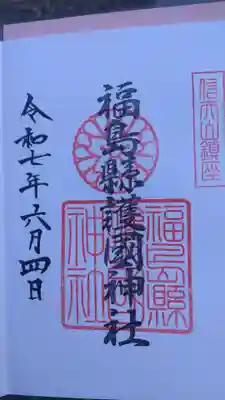 信夫山鎮座
福島縣護國神社
令和七年六月四日
福島縣
護國
神社